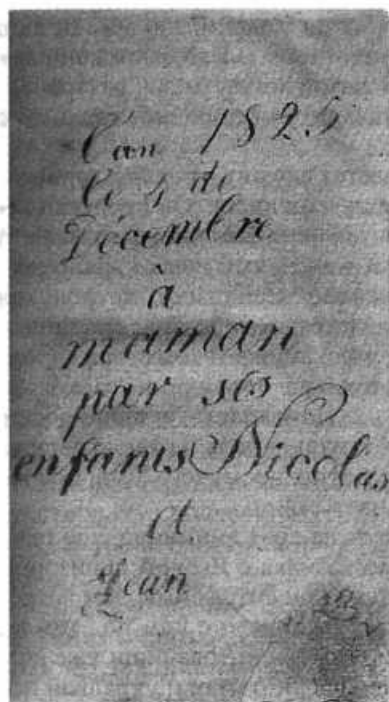 L'an 1825
le 4 de
Décembre
à
maman
par ses
enfants Nicolas
et
Jean